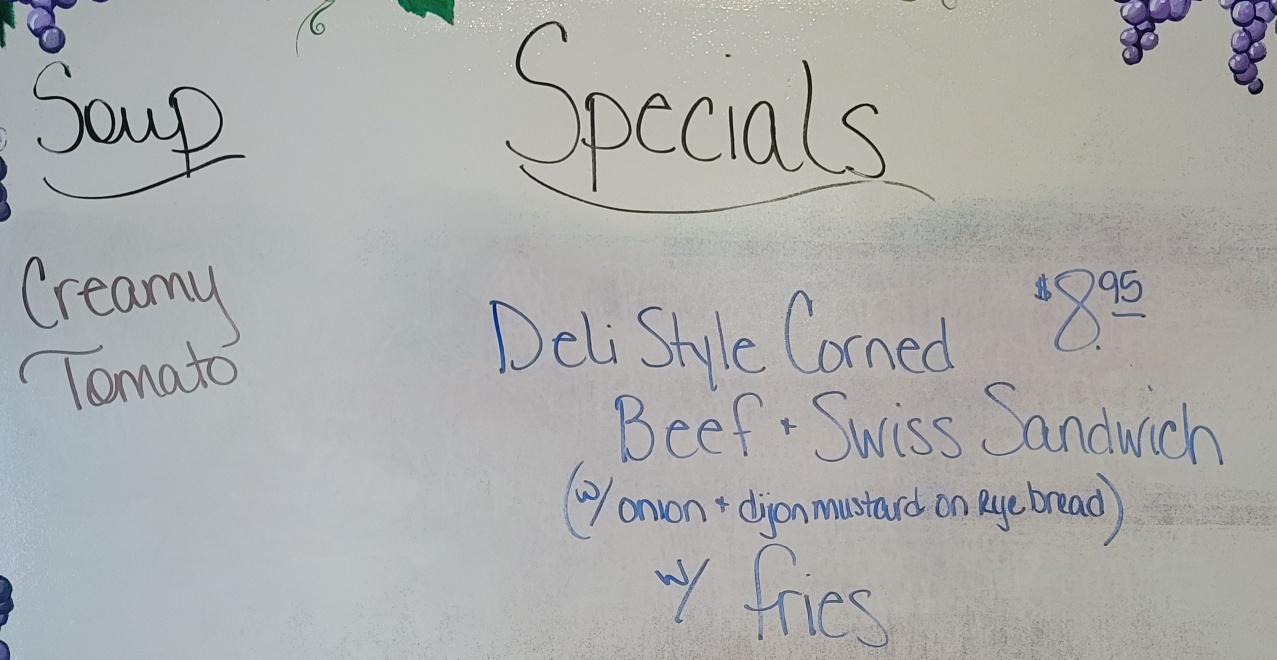 Soup
Creamy
Tomato
Specials
Deli Style Corned $8.95
Beef + Swiss Sandwich
(w/ onion + dijon mustard on Rye bread)
w/ fries